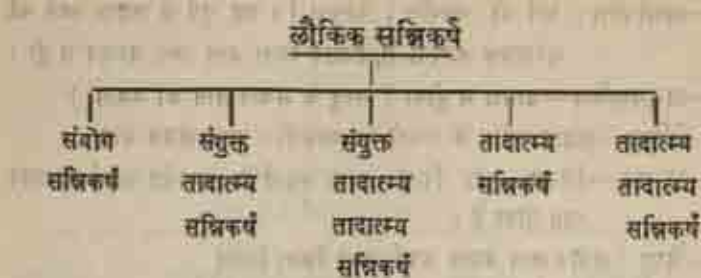 लौकिक सन्निकर्ष
संयोग
सन्निकर्ष
संयुक्त
तादात्म्य
सन्निकर्ष
संयुक्त
तादात्म्य
तादात्म्य
सन्निकर्ष
तादात्म्य
सन्निकर्ष
तादात्म्य
तादात्म्य
सन्निकर्ष